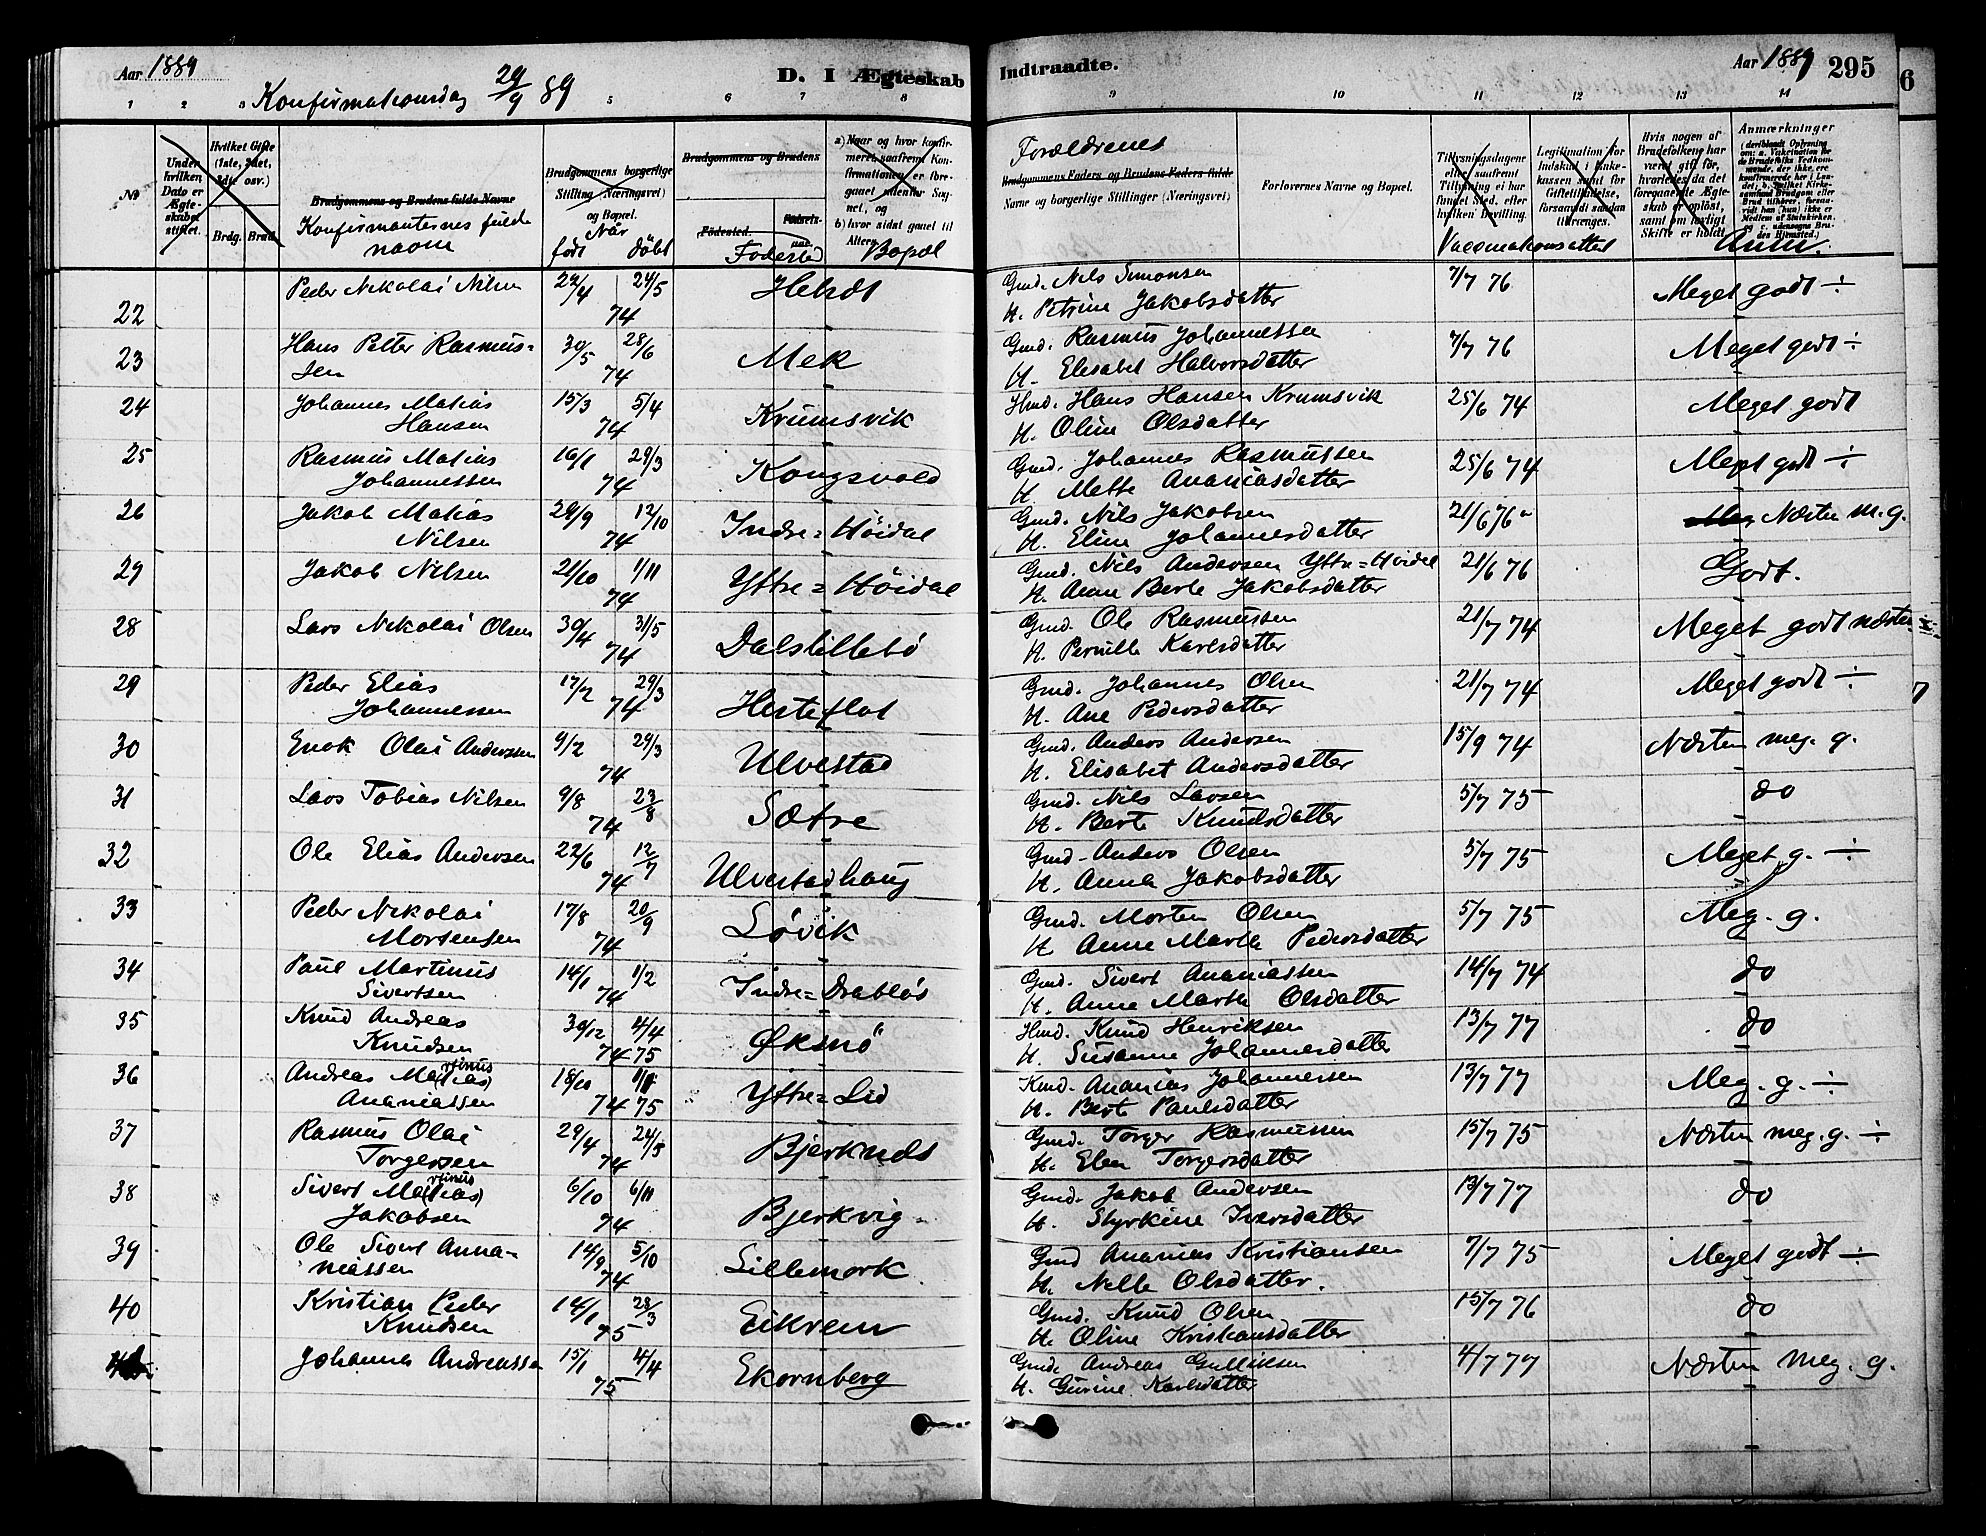 Aar 1889
Konfirmationsdag 29/9 89
D. I Ægteskab
Indtraadte.
Aar 1889
295
6
1 2 3 5 6 7 8 9 10 11 12 13 14
No
Under hvilken Dato er Ægteskabet stiftet.
Hvilket Gifte (1ste, 2det, 3die osv.)
Brdg. Brud.
Brudgommens og Brudens fulde Navne
Konfirmanternes fulde navne
Brudgommens borgerlige Stilling (Næringsvei) og Bopæl.
Når
født døbt
Brudgommens og Brudens
Fødested.
Fødested
Bopæl
Forældrenes
Brudgommens Faders og Brudens Faders fulde Navne og borgerlige Stillinger (Næringsvei)
Forlovernes Navne og Bopæl.
Tillysningsdagene eller saafremt Tillysning ei har fundet Sted, efter hvilken Bevilling.
Legitimation for Indskud i Enkekassen samt for Giftetilladelse, forsaavidt saadan tiltrænges.
Vaccinationsattest
Hvis nogen af Brudefolkene har været gift før, hvorledes da det foregaaende Ægteskab er opløst, samt om lovligt Skifte er holdt.
Anmærkninger
Anm.
22 Peder Nikolai Nilsen 22/4 24/5 74 Helsdt Gmd. Nils Simonsen 7/7 76 Meget godt ÷
H. Petrine Jakobsdatter
23 Hans Petter Rasmus= 30/5 28/6 Mek Gmd. Rasmus Johannessen 7/7 76 Meget godt ÷
sen 74 H. Elisabet Halvorsdatter
24 Johannes Matias 15/3 5/4 Krumsvik Hmd. Hans Hansen Krumsvik 25/6 74 Meget godt
Hansen 74 H. Oline Olsdatter
25 Rasmus Matias 16/1 29/3 Kongsvold Gmd. Johannes Rasmussen 25/6 74 Meget godt ÷
Johannessen 74 H. Mette Ananiasdatter
26 Jakob Matias 29/9 12/10 Indre=Höidal Gmd. Nils Jakobsen 21/6 76 Næsten m.g.
Nilsen 74 H. Eline Johannesdatter
29 Jakob Nilsen 21/10 1/11 Yttre=Höidal Gmd. Nils Andersen Yttre=Höidal 21/6 76 Godt.
74 H. Anne Berte Jakobsdatter
28 Lars Nikolai Olsen 30/4 31/5 Dalslillebö Gmd. Ole Rasmussen 21/7 74 Meget godt næsten
74 H. Pernille Karlsdatter
29 Peder Elias 17/2 29/3 Hesteflot Gmd. Johannes Olsen 21/7 74 Meget godt ÷
Johannessen 74 H. Ane Pedersdatter
30 Enok Olai Anderssen 9/2 29/3 Ulvestad Gmd. Anders Andersen 15/9 74 Næsten meg. g.
74 H. Elisabet Andersdatter
31 Lars Tobias Nilsen 9/8 23/8 Sætre Gmd. Nils Larsen 5/7 75 do
74 H. Berte Knudsdatter
32 Ole Elias Andersen 22/6 12/7 Ulvestadhaug Gmd. Anders Olsen 5/7 75 Meget g. ÷
74 H. Anna Jakobsdatter
33 Peder Nikolai 17/8 20/9 Løvik Gmd. Morten Olsen 5/7 75 Meg. g.
Mortensen 74 H. Anne Marte Pedersdatter
34 Paul Martinus 14/1 1/2 Indre=Drabløs Gmd. Sivert Ananiassen 14/7 74 do
Sivertsen 74 H. Anne Marte Olsdatter
35 Knud Andreas 30/12 4/4 Øksnö Hmd. Knud Henriksen 13/7 77 do
Knudsen 74 75 H. Susanne Johannesdatter
36 Andreas Ma(tias) rtinus 18/10 1/1 Yttre=Lid Kmd. Ananias Johannessen 13/7 77 Meg. g. ÷
Ananiassen 74 75 H. Berte Paulsdatter
37 Rasmus Olai 29/4 24/5 Bjerknds Gmd. Torger Rasmussen 15/7 75 Næsten meg. g. ÷
Torgersen 74 H. Elen Torgersdatter
38 Sivert Ma(tias) rtinus 6/10 6/11 Bjerkvig Gmd. Jakob Andersen 13/7 77 do
Jakobsen 74 H. Styrkine Iversdatter
39 Ole Sivert Anna= 14/9 5/10 Lillemork Gmd Ananias Kristiansen 7/7 75 Meget godt ÷
niassen 74 H. Nelle Olsdatter.
40 Kristian Peder 14/1 28/3 Eikrem Gmd. Knud Olsen 15/7 76 do
Knudsen 75 H. Oline Kristiansdatter
Johannes Andreassen 15/1 4/4 Ekornberg Gmd. Andreas Gulliksen 4/7 77 Næsten meg. g.
75 H. Gurine Karlsdatter